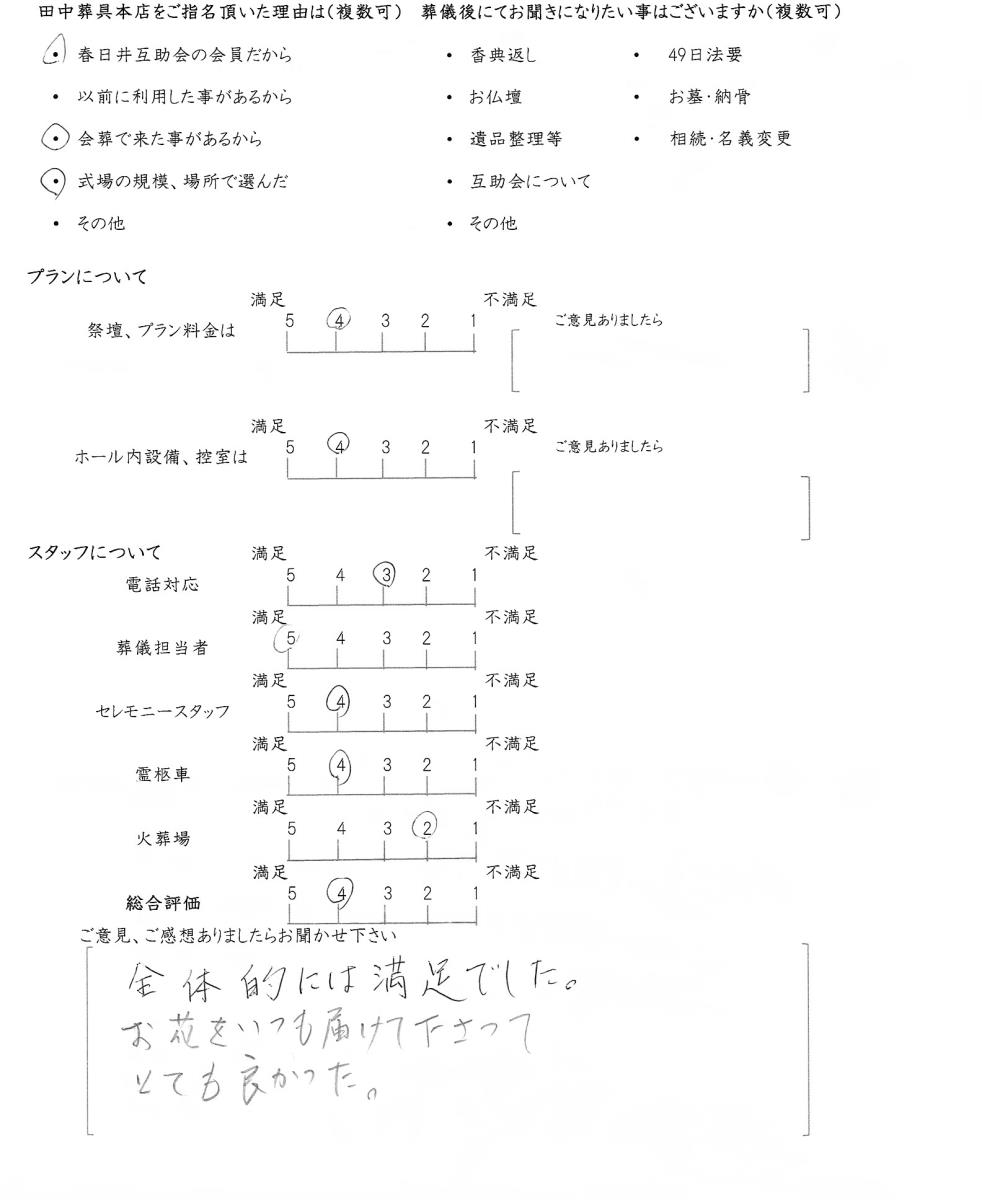 田中葬具本店をご指名頂いた理由は(複数可) 葬儀後にてお聞きになりたい事はございますか(複数可)
・ 春日井互助会の会員だから ・ 香典返し ・ 49日法要
・ 以前に利用した事があるから ・ お仏壇 ・ お墓・納骨
・ 会葬で来た事があるから ・ 遺品整理等 ・ 相続・名義変更
・ 式場の規模、場所で選んだ ・ 互助会について
・ その他 ・ その他
プランについて
満足 不満足
祭壇、プラン料金は 5 4 3 2 1 ご意見ありましたら
満足 不満足
ホール内設備、控室は 5 4 3 2 1 ご意見ありましたら
スタッフについて 満足 不満足
電話対応 5 4 3 2 1
満足 不満足
葬儀担当者 5 4 3 2 1
満足 不満足
セレモニースタッフ 5 4 3 2 1
満足 不満足
霊柩車 5 4 3 2 1
満足 不満足
火葬場 5 4 3 2 1
満足 不満足
総合評価 5 4 3 2 1
ご意見、ご感想ありましたらお聞かせ下さい
全体的には満足でした。
お花をいつも届けて下さって
とても良かった。